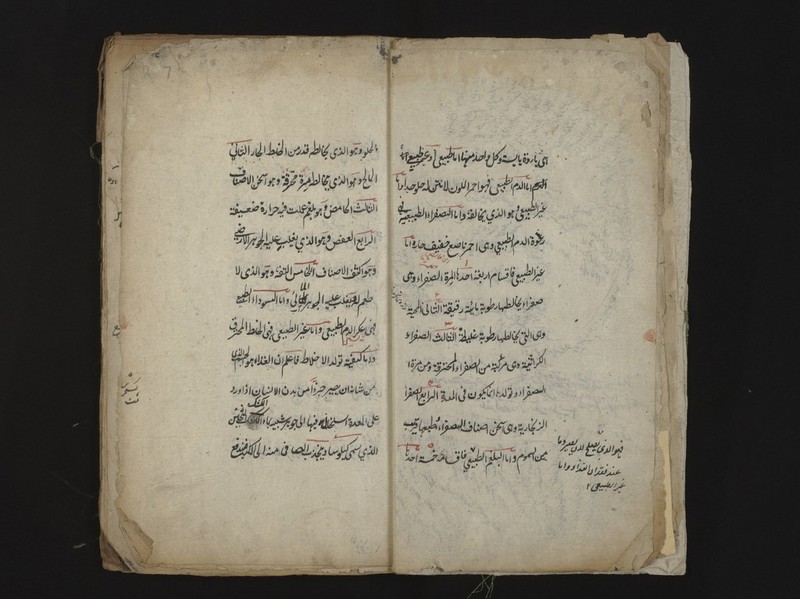 اى باردة يابسة وكل واحد منها اما طبيعى او غير طبيعى اما
الدم اما الدم الطبيعى فهو احمر اللون لا نتن له حلو جدا واما
غير الطبيعى وهو الذى يخالفه واما الصفراء الطبيعية فهى
رغوة الدم الطبيعى وهى احمر ناصع خفيف حار واما
غير الطبيعى فاقسام اربعة احدها المرة الصفراء وهى
صفراء يخالطها رطوبة مائية رقيقة الثانى المحية
وهى التى يخالطها رطوبة غليظة الثالث الصفراء
الكراثية وهى مركبة من الصفراء المحترقة ومن مرة
الصفراء وتولدها انما يكون فى المعدة الرابع الصفراء
الزنجارية وهى اسخن اصناف الصفراء وطبعها قريب
من السموم واما البلغم الطبيعى فاق خمسة احدها
فهو الذى يصلح لان يصير دما
عند فقدان الغذاء واما
غير الطبيعى ٢
الحلو وهو الذى يخالطه قدر من الخلط الحار الثانى
المالح وهو الذى يخالطه مرة محترقة وهو اسخن الاصناف
الثالث الحامض وهو بلغم عملت فيه حرارة ضعيفة
الرابع العفص وهو الذى يغلب عليه الجوهر الارضى
وهو اكثف الاصناف الخامس التفه وهو الذى لا
طعم له ويغلب عليه الجوهر المائى واما السوداء الطبيعى
فهى عكر الدم الطبيعى واما غير الطبيعى فهى الخلط المحترق
واما كيفية تولد الاخلاط فاعلم ان الغذاء هو الجسم الذى
من شانه ان يصير جزءا من بدن الانسان اذا ورد
على المعدة استحال فيها الى جوهر شبيه بماء الكشك الثخين
الذى يسمى كيلوسا وينجذب الصافى منه الى الكبد فيندفع